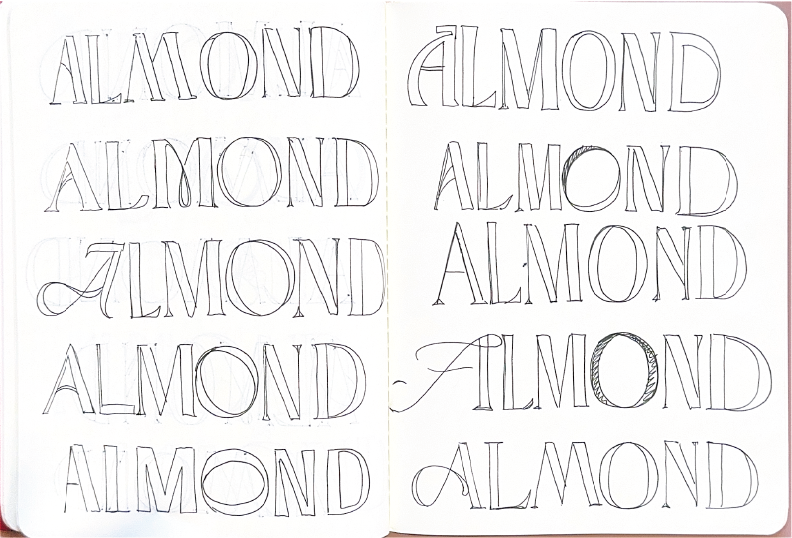 ALMOND
ALMOND
ALMOND
ALMOND
ALMOND
ALMOND
ALMOND
ALMOND
ALMOND
ALMOND